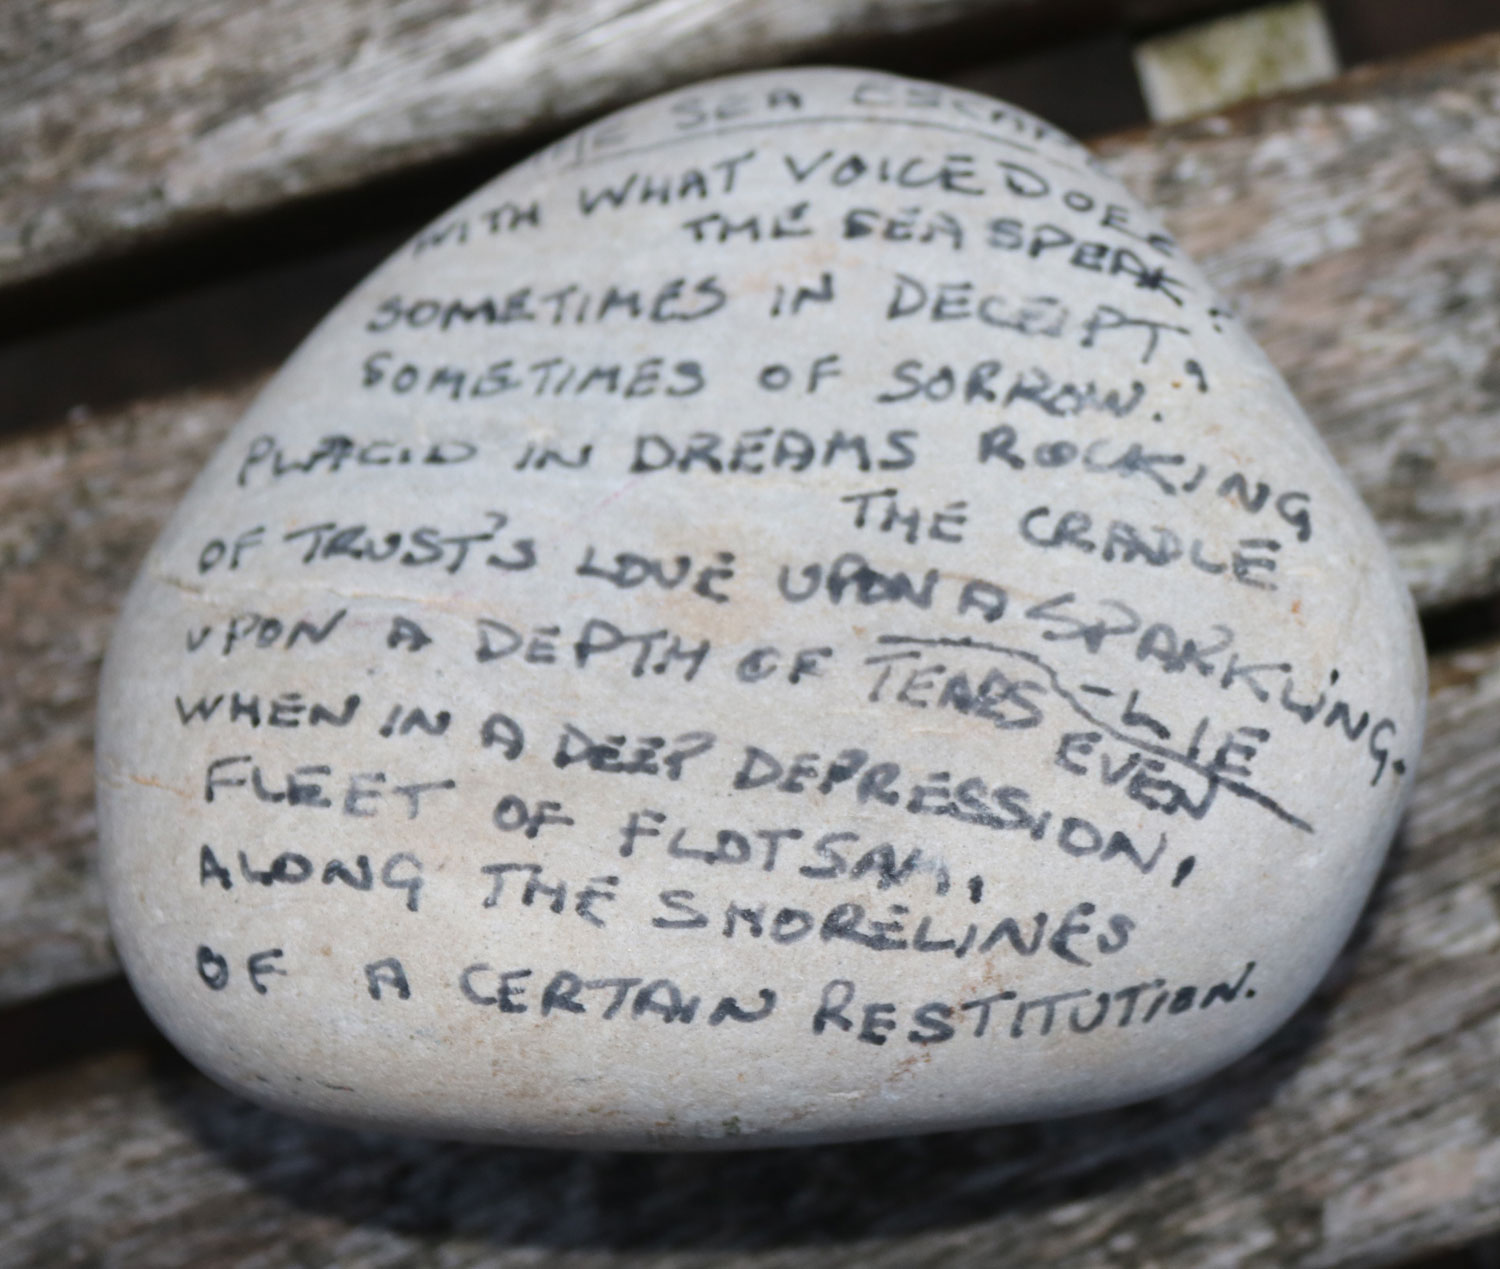 THE SEA
WITH WHAT VOICE DOES
THE SEA SPEAK?
SOMETIMES IN DECEIPT,
SOMETIMES OF SORROW.
PLACID IN DREAMS ROCKING
THE CRADLE
OF TRUST'S LOVE UPON A SPARKLING.
-LIE
UPON A DEPTH OF TEARS EVEN
WHEN IN A DEEP DEPRESSION,
FLEET OF FLOTSAM,
ALONG THE SHORELINES
OF A CERTAIN RESTITUTION.